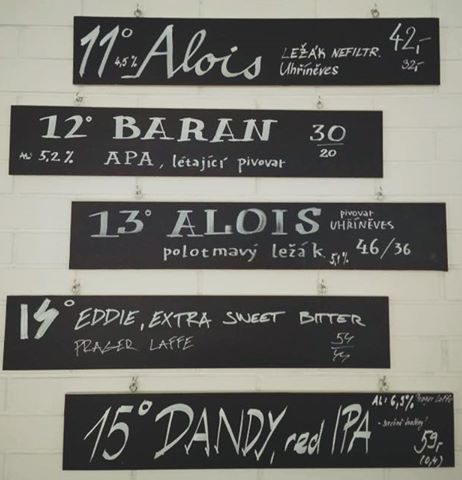 11° 4,5% Alois LEŽÁK NEFILTR. 42,-
Uhříněves 32,-
12° BARAN 30
Alk 5,2% APA, létající pivovar 20
13° ALOIS pivovar
UHŘÍNĚVES
polotmavý ležák 5,1% 46/36
14° EDDIE, EXTRA SWEET BITTER 54
PRAGER LAFFE 44
15° DANDY, red IPA Al: 6,3% Prager Laffe
59,-
(0,4)